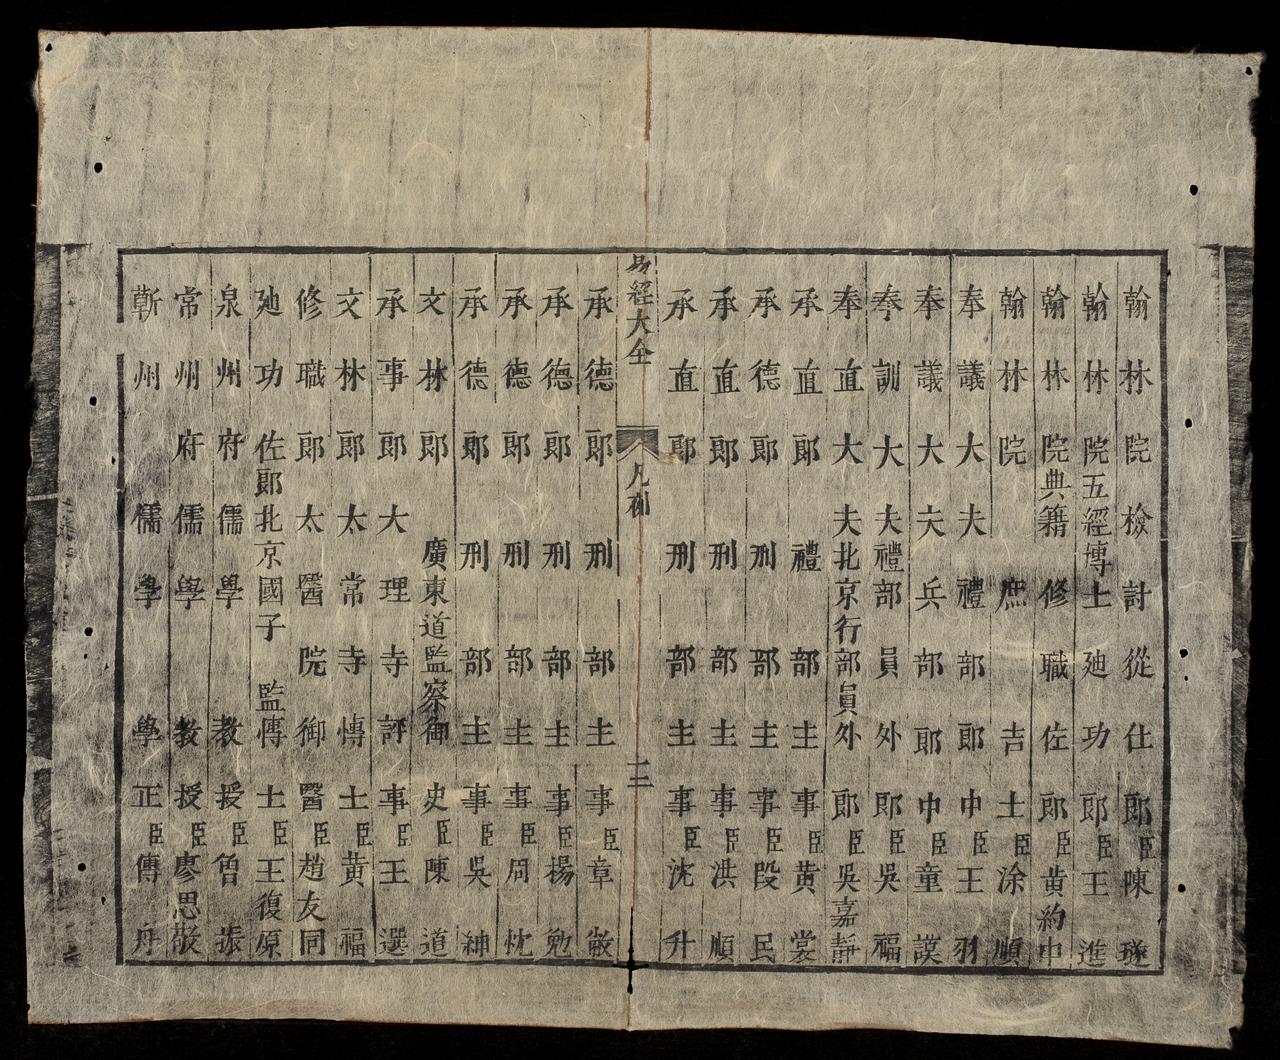 翰林院檢討從仕郎臣陳璲
翰林院五經博士廸功郎臣王進
翰林院典籍修職佐郎臣黄約中
翰林院庶吉士臣涂順
奉議大夫禮部郎中臣王羽
奉議大夫兵部郎中臣童謨
奉訓大夫禮部員外郎臣吳福
奉直大夫北京行部員外郎臣吳嘉靜
承直郎禮部主事臣黃裳
承德郎刑部主事臣段民
承直郎刑部主事臣洪順
承直郎刑部主事臣沈升
易經大全
凡例
三
承德郎刑部主事臣章敞
承德郎刑部主事臣楊勉
承德郎刑部主事臣周忱
承德郎刑部主事臣吳紳
文林郎廣東道監察御史臣陳道
承事郎大理寺評事臣王選
文林郎太常寺博士臣黃福
修職郎太醫院御醫臣趙友同
廸功佐郎北京國子監博士臣王復原
泉州府儒學教授臣曾振
常州府儒學教授臣廖思敬
蘄州儒學學正臣傅舟